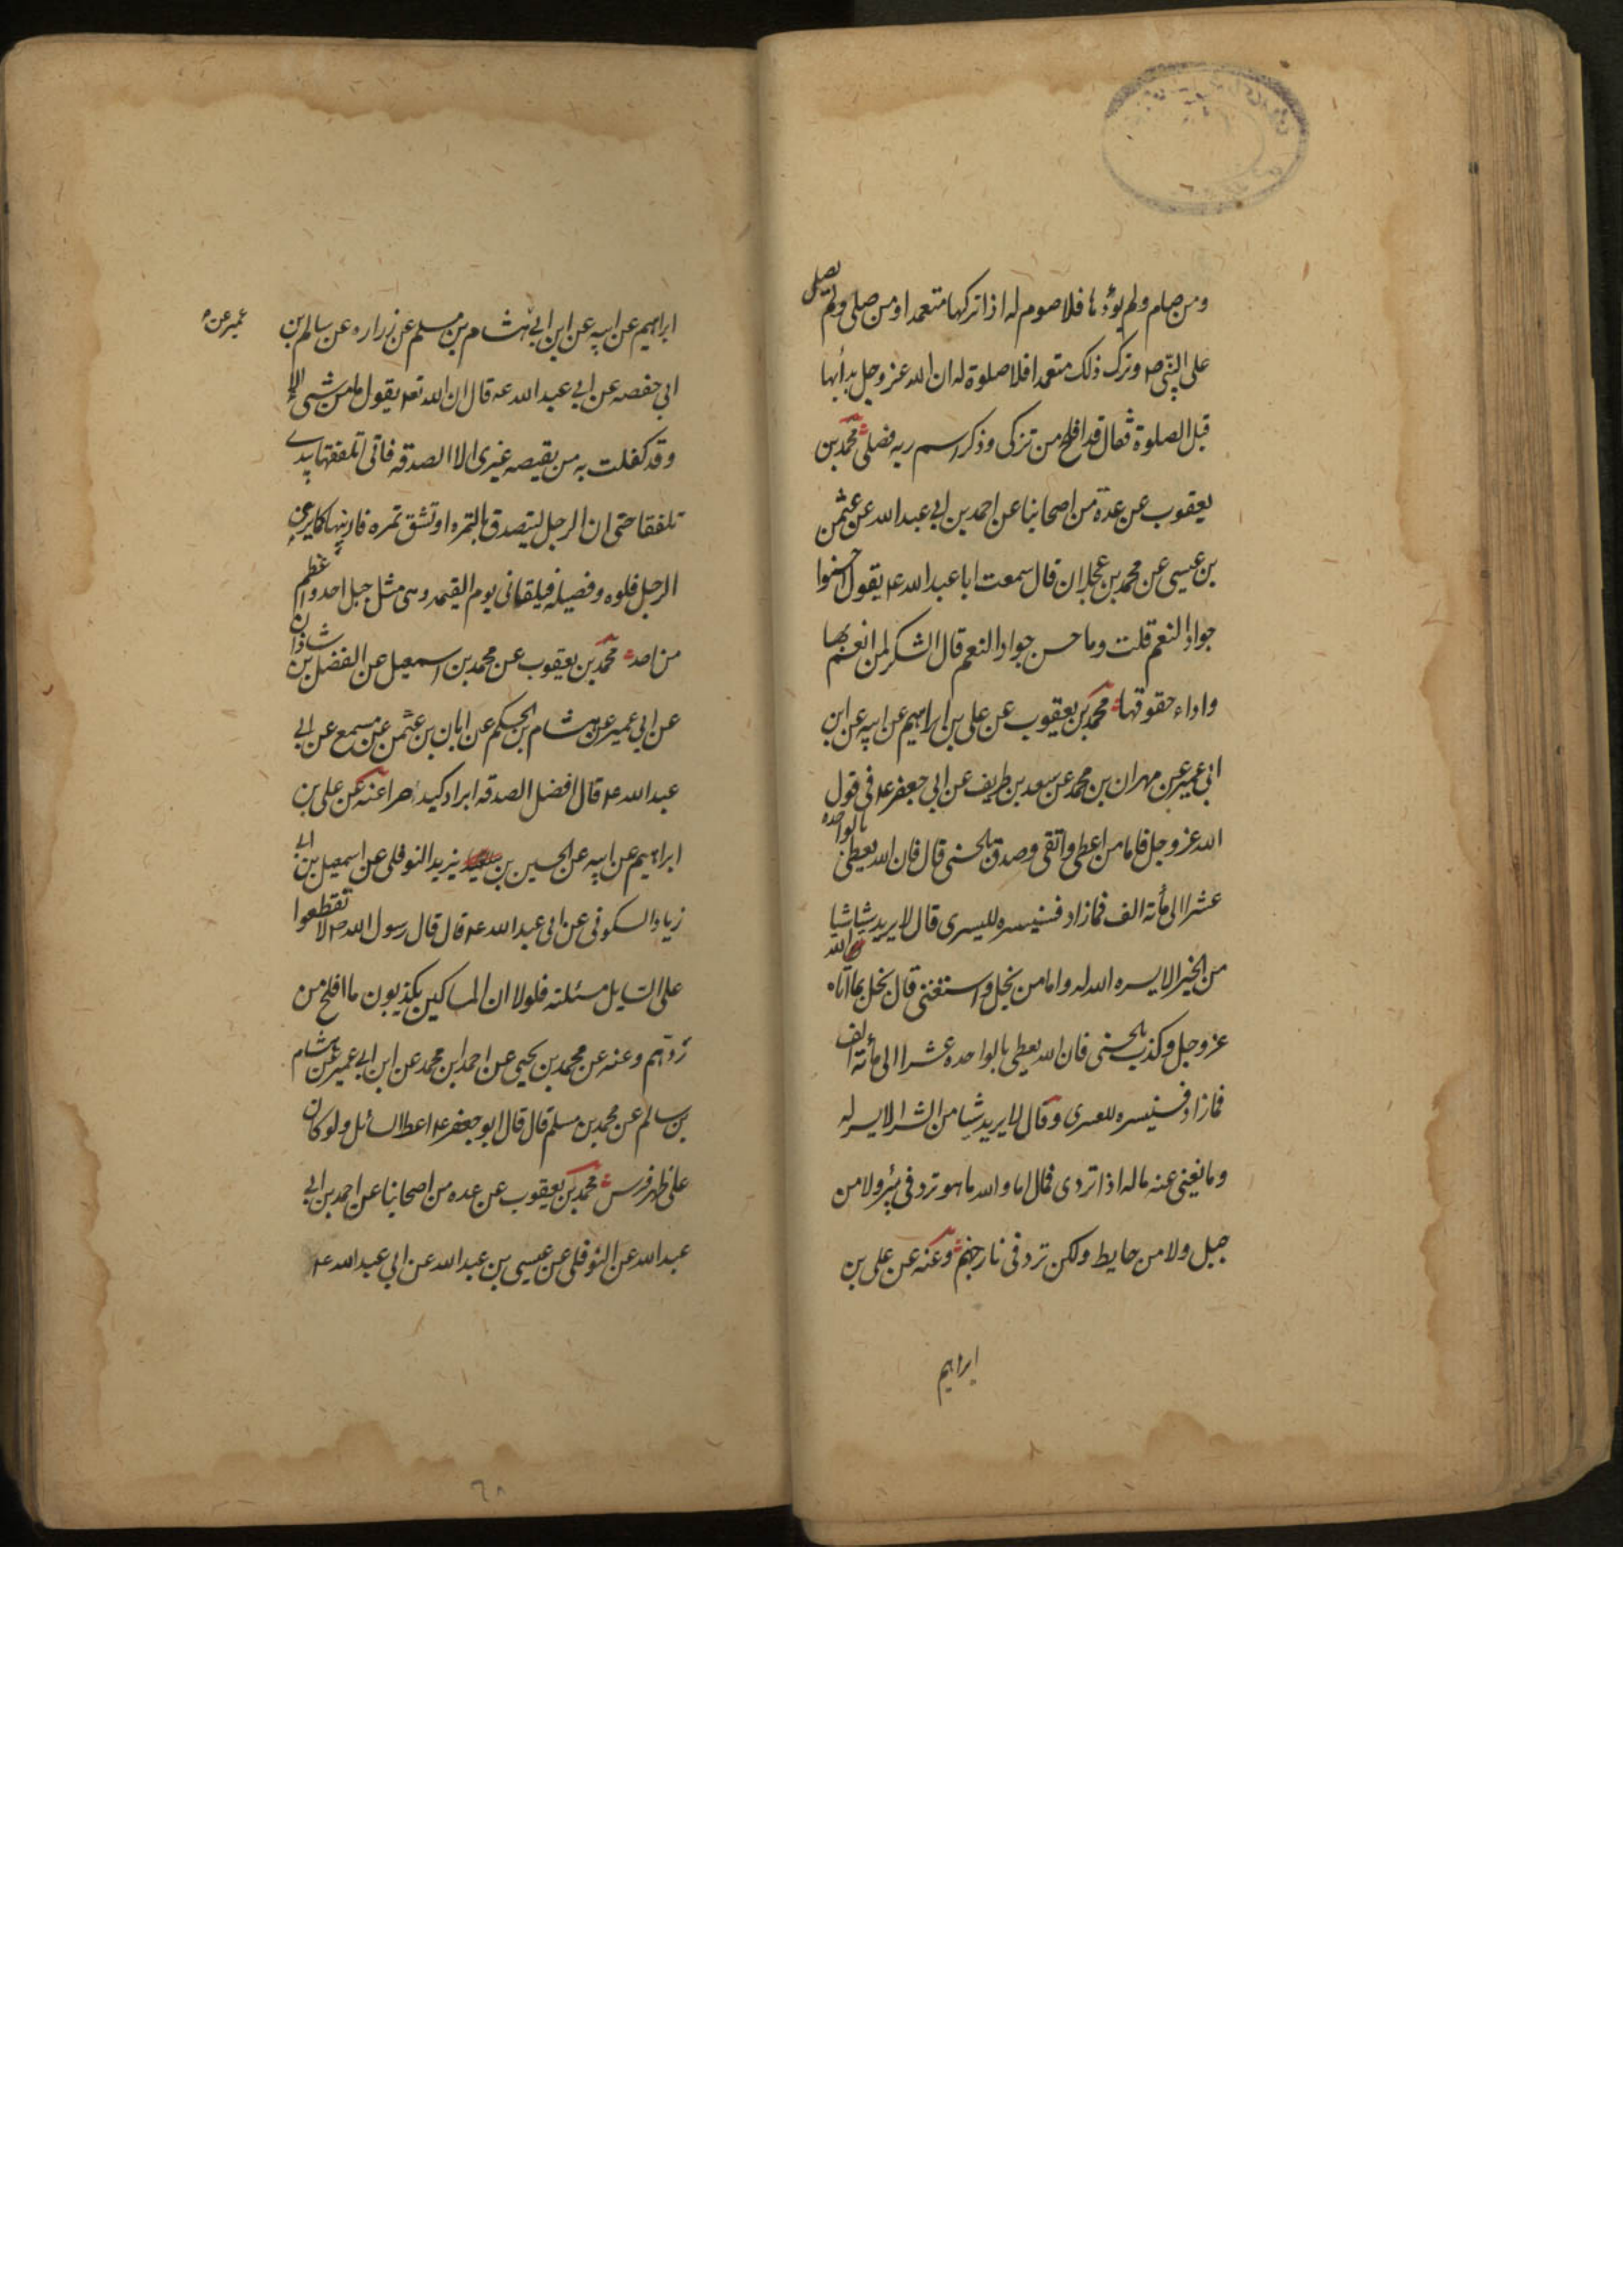 ومن صام ولم يؤدها فلا صوم له اذا تركها متعمدا ومن صلى ولم يصلى
على النبى ص وترك ذلك متعمدا فلا صلوة له ان الله عز وجل بدأبها
قبل الصلوة فقال قد افلح من تزكى وذكر اسم ربه فصلى محمد بن
يعقوب عن عدة من اصحابنا عن احمد بن ابى عبد الله عن عثمن
بن عيسى عن محمد بن عجلان قال سمعت ابا عبد الله ع يقول احسنوا
جوار النعم قلت وما حسن جوار النعم قال الشكر لمن انعم بها
واداء حقوقها محمد بن يعقوب عن على بن ابراهيم عن ابيه عن ابن
ابى عمير عن مهران بن محمد عن سعد بن طريف عن ابى جعفر ع فى قول
الله عز وجل فاما من اعطى واتقى وصدق بالحسنى قال فان الله يعطى بالواحده
عشرا الى مأته الف فمازاد فسنيسره لليسرى قال لا يريد شيا
من الخير الا يسره الله له واما من بخل واستغنى قال بخل بما اتاه الله
عز وجل وكذب بالحسنى فان الله يعطى بالواحده عشرا الى مأته الف
فمازاد فسنيسره للعسرى وقال لا يريد شيا من الشر الا يسر له
وما يغنى عنه ماله اذا تردى قال اما والله ما هو ترد فى بئر ولا من
جبل ولا من حايط ولكن ترد فى نار جهنم وعنه عن على بن
ابراهيم
ابراهيم عن ابيه عن ابن ابى هشام بن مسلم عن زراره عن سالم بن
عمير عن
ابى حفصه عن ابى عبد الله ع قال ان الله تع يقول ما من شىء الا
وقد كفلت به من يقبصه غيرى الا الصدقه فانى اتلقفها بيدى
تلقفا حتى ان الرجل ليتصدق بالتمره او تشق تمره فاربيها كما يربى
الرجل فلوه وفصيله فيلقانى يوم القيمه وهى مثل جبل احد واعظم
من احد محمد بن يعقوب عن محمد بن اسمعيل عن الفضل بن شاذان
عن ابى عمير عن هشام بن الحكم عن ابان بن عثمن عن مسمع عن ابى
عبد الله ع قال افضل الصدقه ابراد كبد حرا عنه عن على بن
ابراهيم عن ابيه عن الحسين بن يزيد النوفلى عن اسمعيل بن ابى
زياد السكونى عن ابى عبد الله ع قال قال رسول الله ص لا تقطعوا
على السايل مسئلته فلولا ان المساكين يكذبون ما افلح من
ردهم وعنه عن محمد بن يحيى عن احمد بن محمد عن ابن ابى عمير عن هشام
بن سالم عن محمد بن مسلم قال قال ابو جعفر ع اعط السائل ولو كان
على ظهر فرس محمد بن يعقوب عن عده من اصحابنا عن احمد بن ابى
عبد الله عن النوفلى عن عيسى بن عبد الله عن ابى عبد الله ع
٦٨